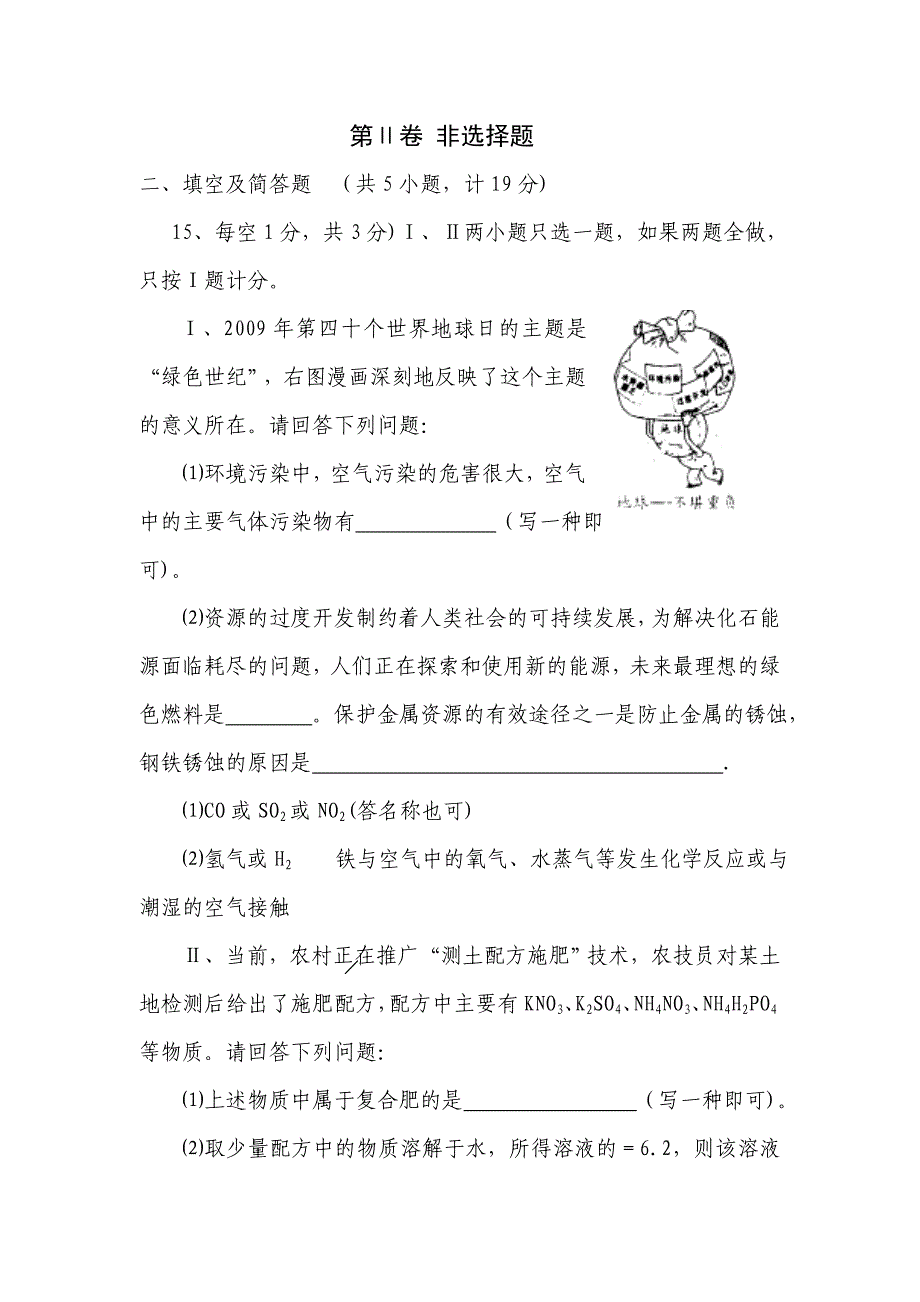 第Ⅱ卷 非选择题
二、填空及简答题 (共5小题，计19分)
15、每空1分，共3分)Ⅰ、Ⅱ两小题只选一题，如果两题全做，
只按Ⅰ题计分。
Ⅰ、2009年第四十个世界地球日的主题是
“绿色世纪”，右图漫画深刻地反映了这个主题
的意义所在。请回答下列问题：
环境污染
地球
地球—不堪重负
⑴环境污染中，空气污染的危害很大，空气
中的主要气体污染物有________________（写一种即
可)。
⑵资源的过度开发制约着人类社会的可持续发展，为解决化石能
源面临耗尽的问题，人们正在探索和使用新的能源，未来最理想的绿
色燃料是__________。保护金属资源的有效途径之一是防止金属的锈蚀，
钢铁锈蚀的原因是________________________________________________.
⑴CO或SO₂或NO₂(答名称也可)
⑵氢气或H₂ 铁与空气中的氧气、水蒸气等发生化学反应或与
潮湿的空气接触
Ⅱ、当前，农村正在推广“测土配方施肥”技术，农技员对某土
地检测后给出了施肥配方，配方中主要有KNO₃、K₂SO₄、NH₄NO₃、NH₄H₂PO₄
等物质。请回答下列问题：
⑴上述物质中属于复合肥的是____________________（写一种即可)。
⑵取少量配方中的物质溶解于水，所得溶液的＝6.2，则该溶液